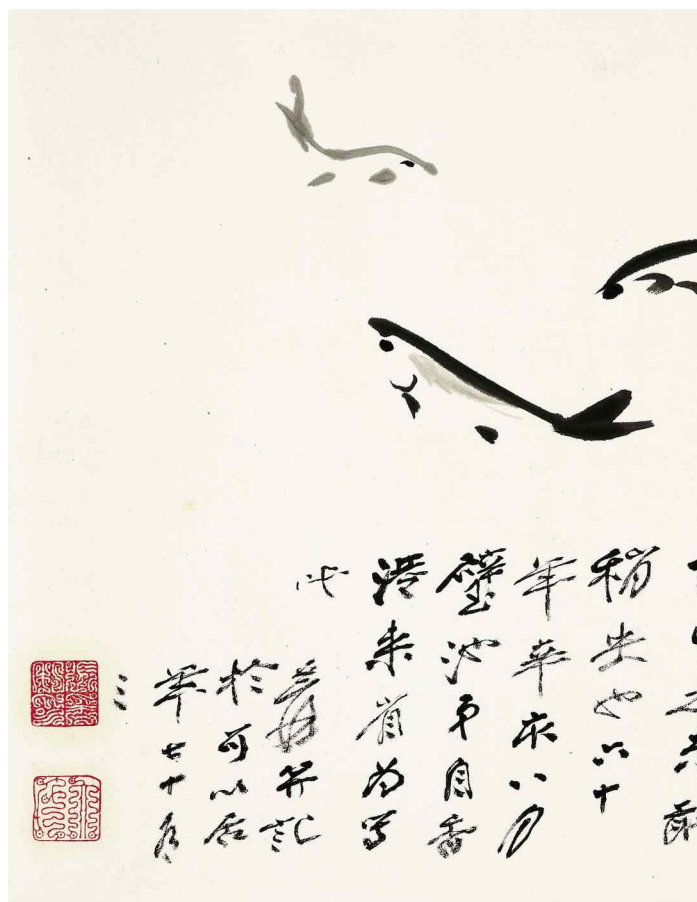 稍失也六十
年辛亥八月
璧池弟自香
港来省為寫
此
爰翁并記
於可以居
年七十有
三